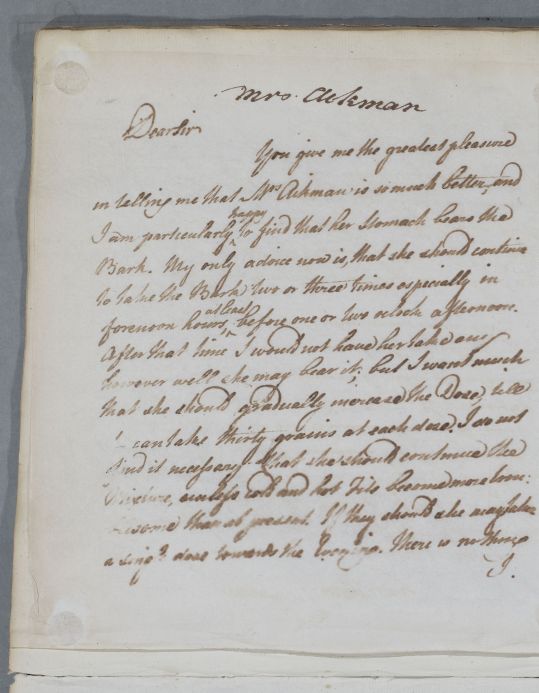 Mrs. Aikman
Dear Sir
You give me the greatest pleasure
in telling me that Mrs Aikman is so much better, and
happy
I am particularly to find that her stomach bears the
Bark. My only advice now is, that she should continue
to take the Bark two or three times especially in
at least
forenoon hours, before one or two oclock afternoon.
After that time I would not have her take any
however well she may bear it; but I want much
that she should gradually increase the Dose, till
can take thirty grains at each dose. I do not
find it necessary that she should continue the
Mixture, unless cold and hot Fits become more trou:
:lesome than at present. If they should she may take
a single dose towards the Evening. There is nothing
I